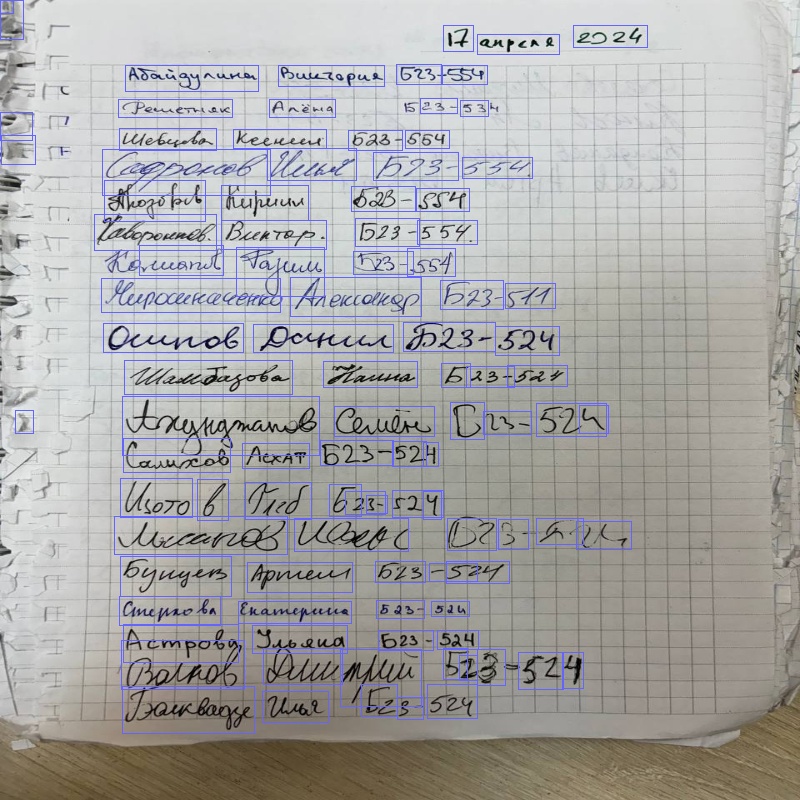 17 апреля 2024
Абайдулина Виктория Б23-554
Решетняк Алёна Б23-534
Шевцова Ксения Б23-554
Сафронов Илья Б23-554.
Кирилл Б23-554
Виктор. Б23-554.
Б23-554
Мирошниченко Александр Б23-511
Осипов Данил Б23-524
Шамбазова Наина Б23-524
Ахунджанов Семён Б23-524
Салихов Асхат Б23-524
Изотов Глеб Б23-524
Б23-524
Бунцев Артем Б23-524
Стеркова Екатерина Б23-524
Астрова, Ульяна Б23-524
Волков Дмитрий Б23-524
Илья Б23-524